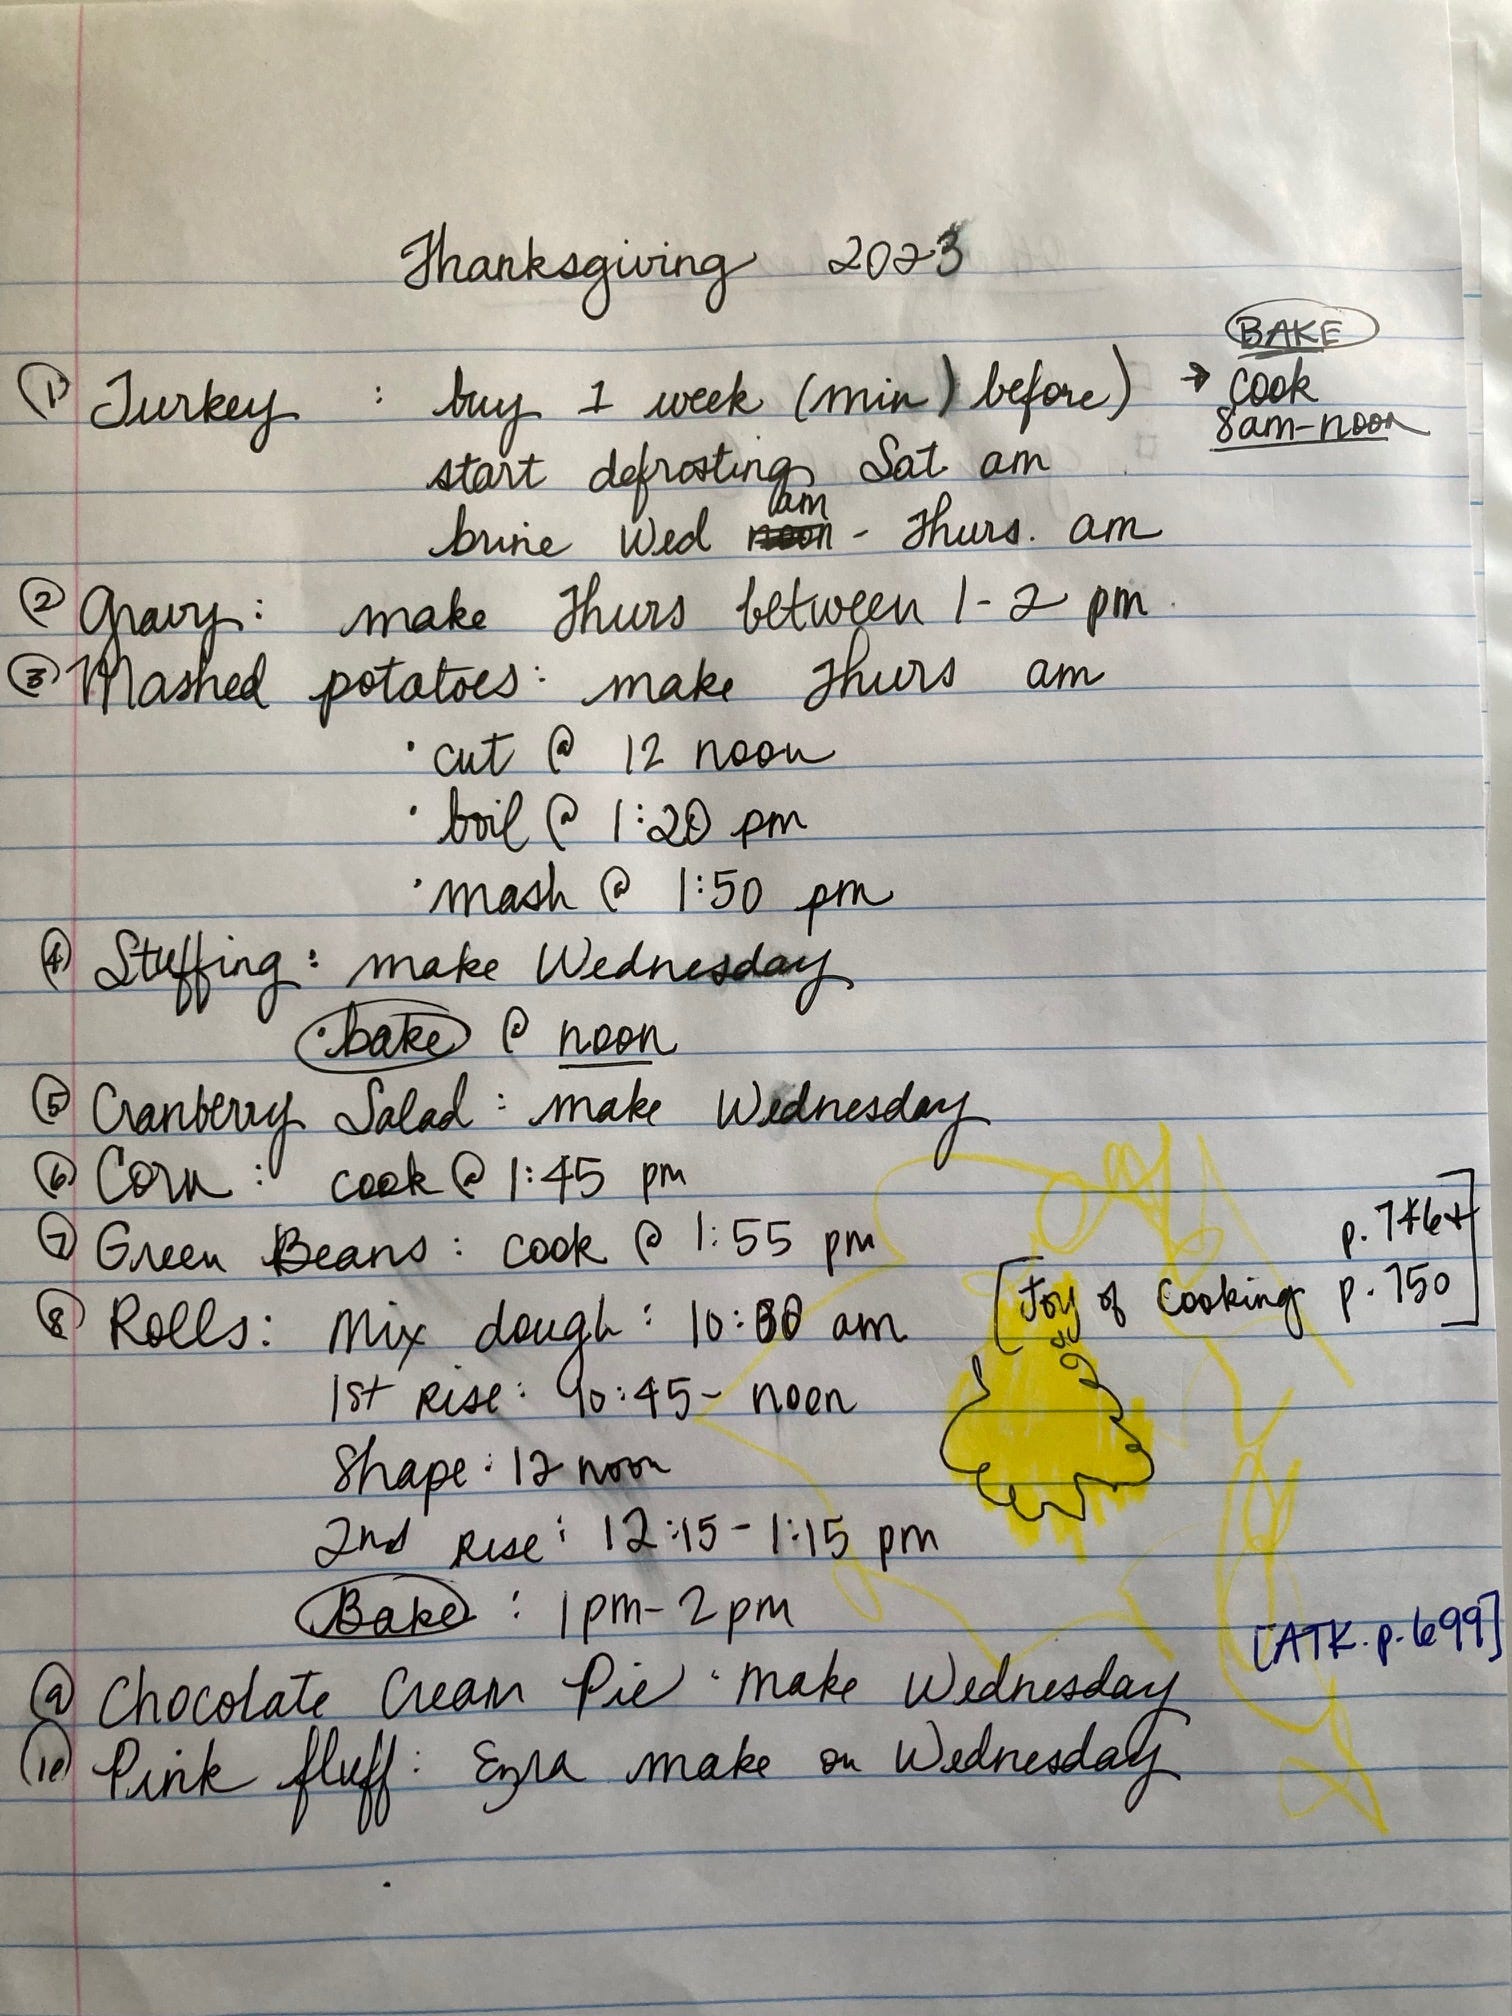 Thanksgiving 2023
BAKE
① Turkey : buy 1 week (min) before) → cook
8am-noon
start defrosting Sat am
am
brine Wed noon - Thurs. am
② Gravy: make Thurs between 1-2 pm
③ Mashed potatoes: make Thurs am
· cut @ 12 noon
· boil @ 1:20 pm
· mash @ 1:50 pm
④ Stuffing: make Wednesday
· bake @ noon
⑤ Cranberry Salad: make Wednesday
⑥ Corn: cook @ 1:45 pm
⑦ Green Beans: cook @ 1:55 pm
p. 746+
⑧ Rolls: Mix dough: 10:30 am [Joy of Cooking p. 750]
1st Rise: 10:45- noon
Shape: 12 noon
2nd Rise: 12:15-1:15 pm
Bake: 1pm-2pm
[ATK. p. 699]
⑨ Chocolate Cream Pie: make Wednesday
⑩ Pink fluff: Ezra make on Wednesday